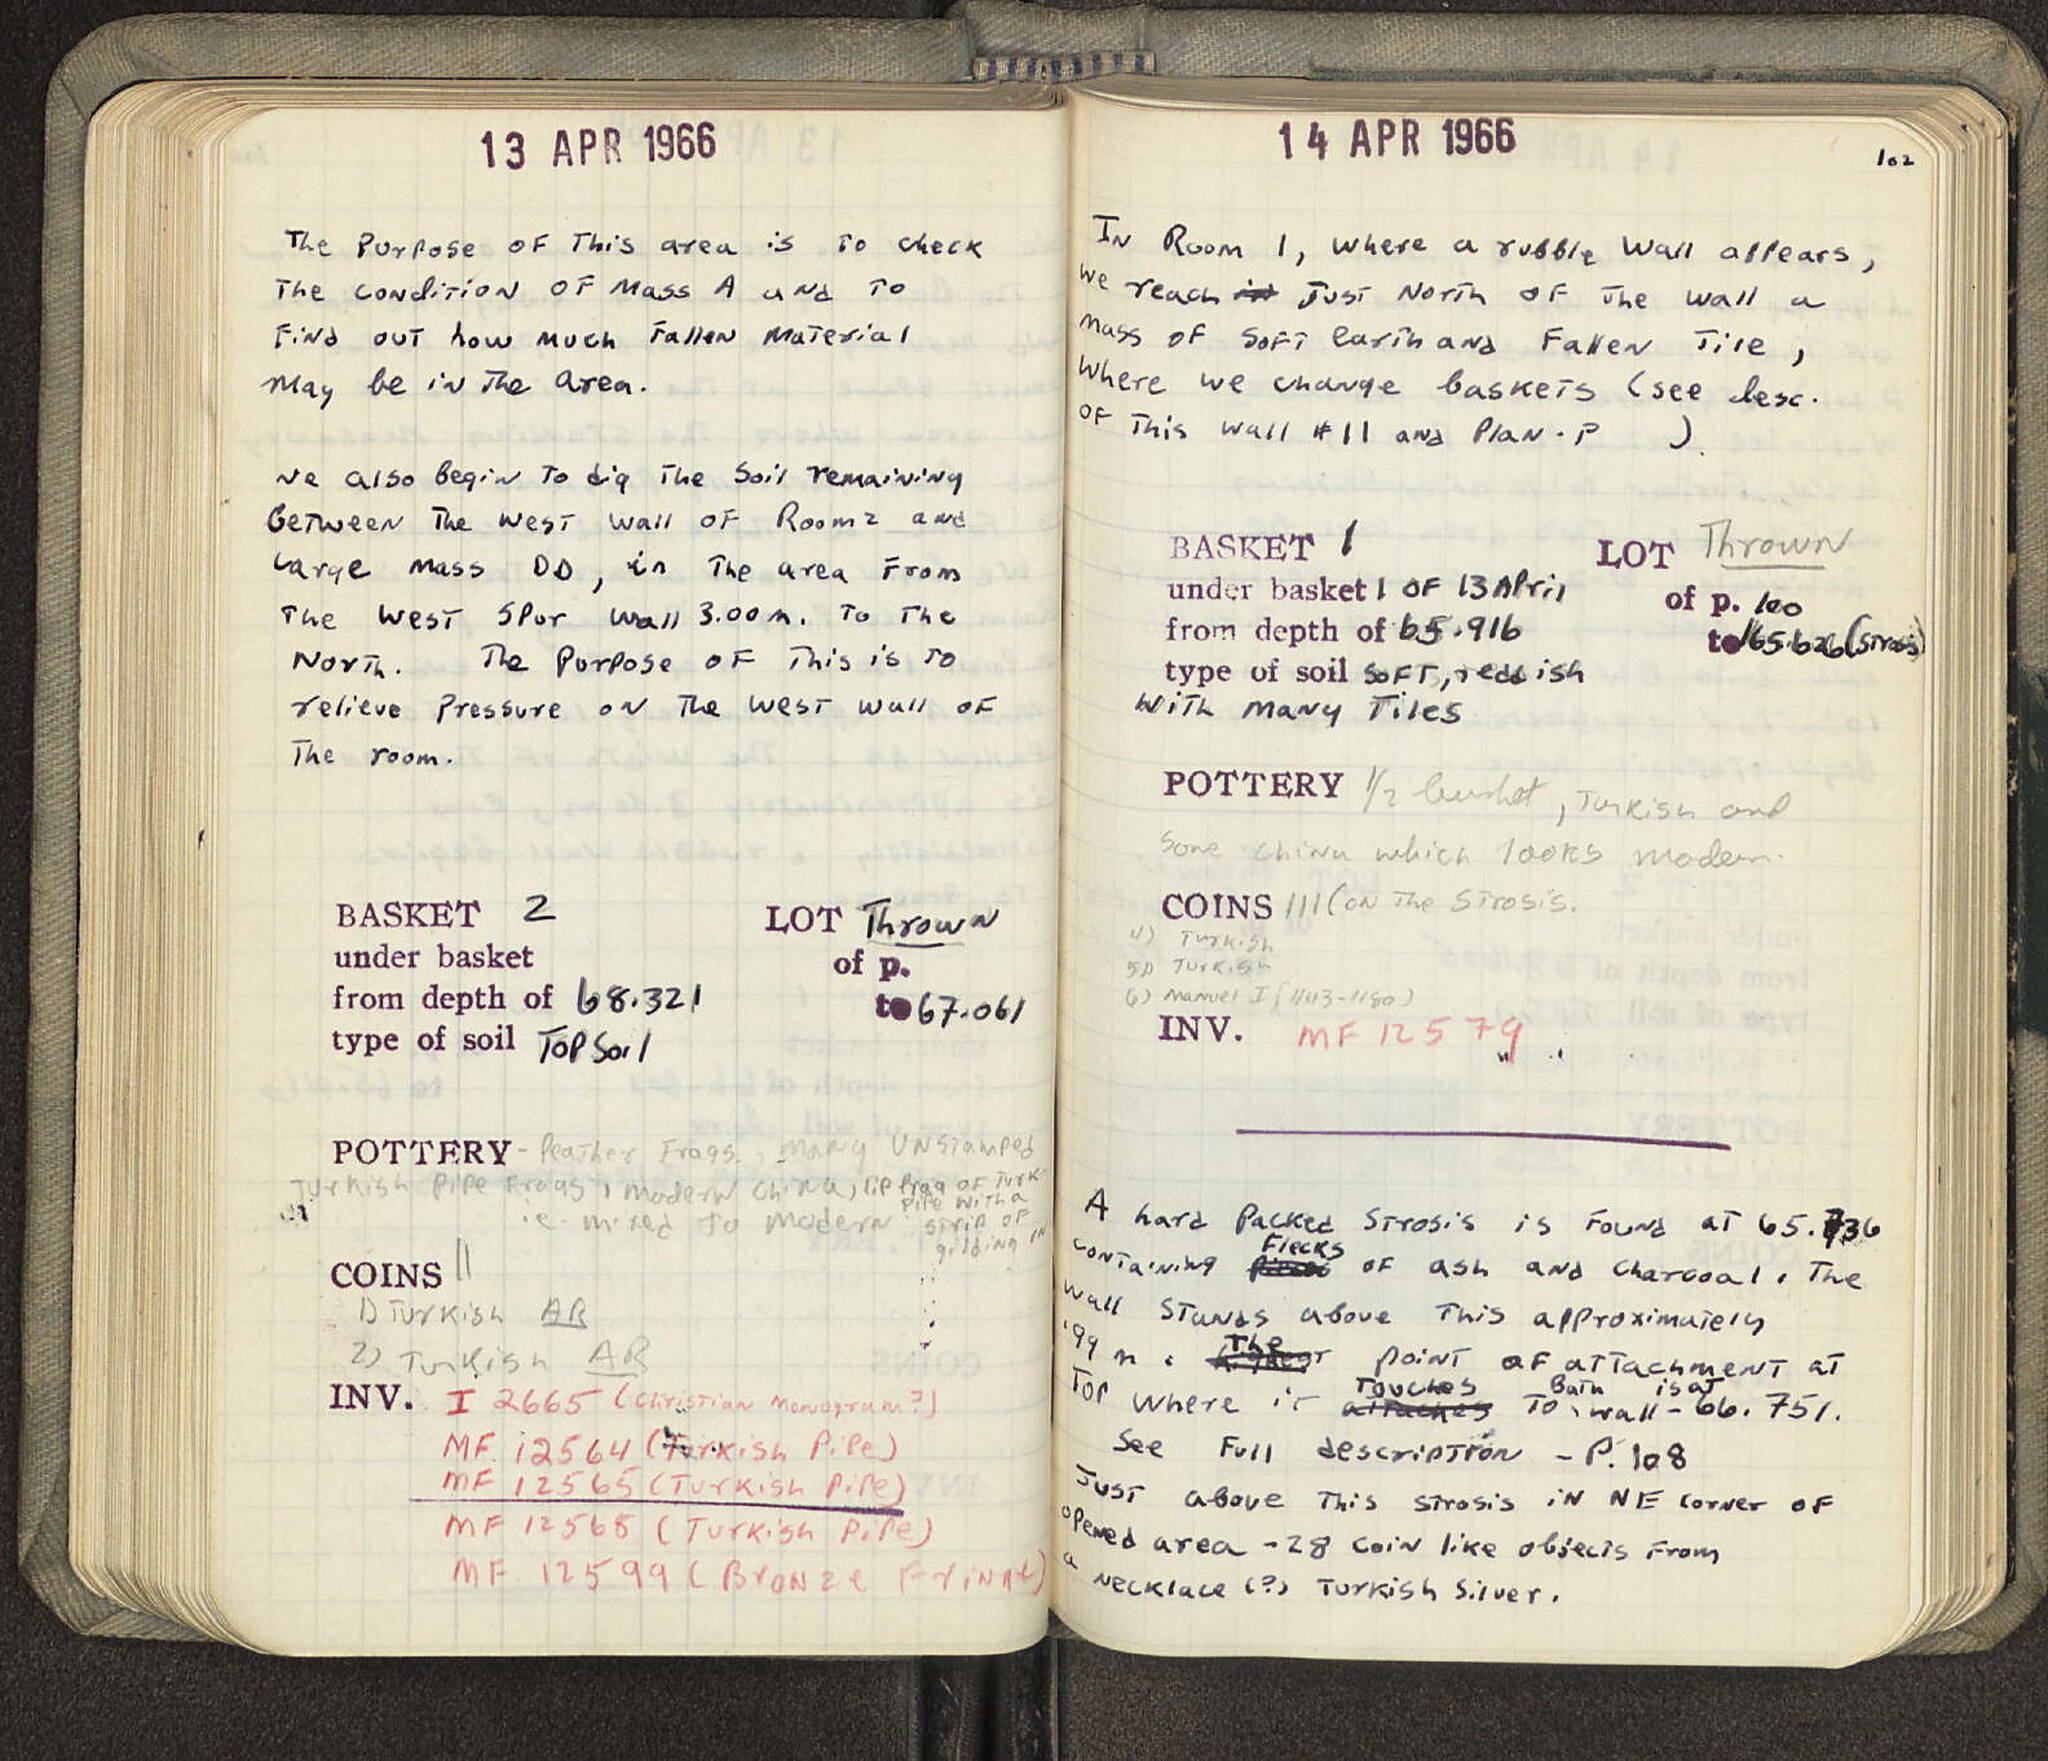 13 APR 1966
The Purpose OF This area is To check
The condition OF Mass A and To
Find out how much Fallen Material
May be in The area.
We also begin To dig The Soil remaining
Between The West Wall OF Room 2 and
Large Mass DD, in The area From
The West Spur Wall 3.00 m. To The
North. The Purpose OF This is To
relieve Pressure on The West Wall OF
The room.
BASKET 2
LOT Thrown
under basket
of p.
from depth of 68.321
to 67.061
type of soil Top Soil
POTTERY - Feather Frags., many Unstamped
Turkish Pipe Frags, modern china, lip frag of Turk
pipe with a
i.e. mixed to modern strip of
gilding in
COINS ||
1) Turkish AR
2) Turkish AR
INV. I 2665 (Christian Monogram?)
MF 12564 (Turkish Pipe)
MF 12565 (Turkish Pipe)
MF 12568 (Turkish Pipe)
MF 12599 (Bronze
14 APR 1966
102
In Room 1, where a rubble Wall appears,
we reach in Just North OF The wall a
mass OF SoFT earth and Fallen Tile,
Where we change baskets (see desc.
OF This wall #11 and Plan - P )
BASKET 1
LOT Thrown
under basket 1 OF 13 April
of p. 100
from depth of 65.916
to 65.626 (strosis)
type of soil SoFT, reddish
With many Tiles
POTTERY 1/2 basket, Turkish and
Some china which looks modern.
COINS ||| (on The Strosis.
4) Turkish
5) Turkish
6) Manuel I (1143-1180)
INV. MF 12579
A hard Packed Strosis is Found at 65.736
Flecks
containing of ash and charcoal. The
Wall Stands above This approximately
.99 m. The point of attachment at
Touches Bath is at
Top where it attaches To wall - 66.751.
See Full description - P. 108
Just above This strosis in NE corner OF
opened area - 28 coin like objects From
a necklace (?) Turkish Silver.